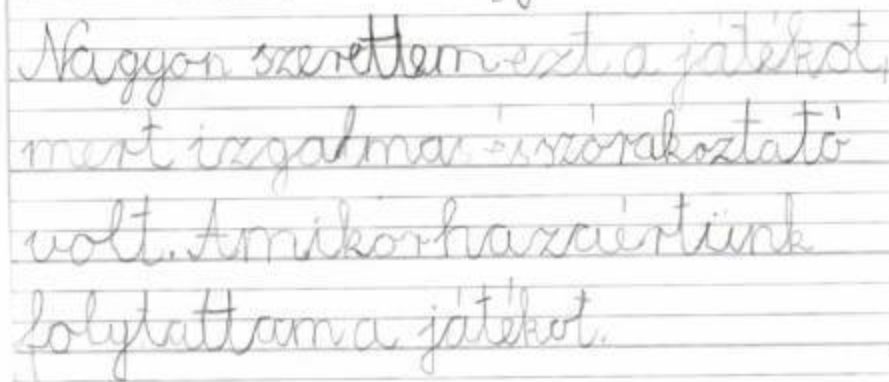 Nagyon szerettem ezt a játékot,
mert izgalmas és szórakoztató
volt. Amikor hazaértünk
folytattam a játékot.